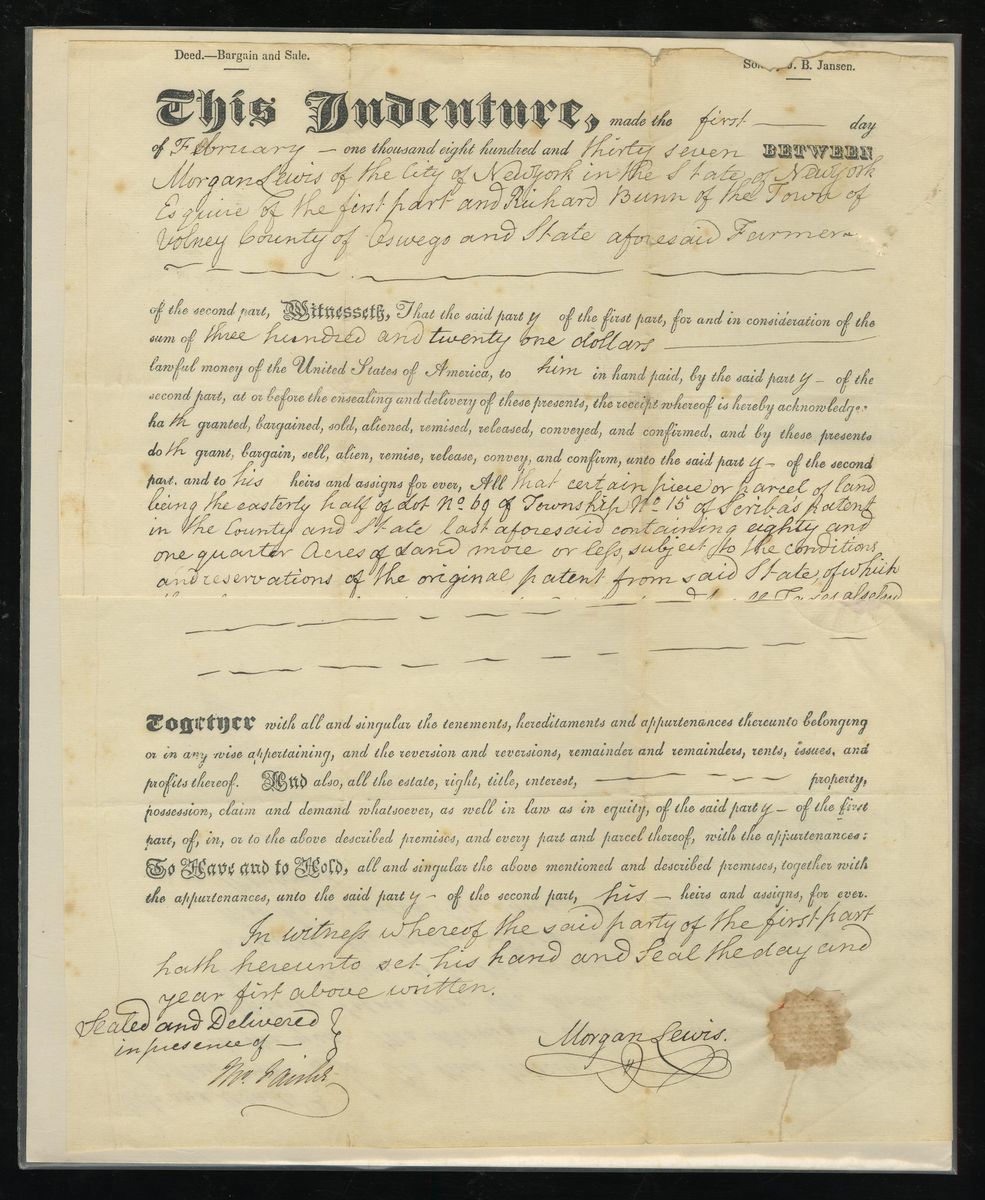 Deed.—Bargain and Sale.
J. B. Jansen.
This Indenture, made the first day
of February – one thousand eight hundred and thirty seven BETWEEN
Morgan Lewis of the City of New York in the State of New York
Esquire of the first part and Richard Bunn of the Town of
Volney County of Oswego and State aforesaid Farmer
of the second part, Witnesseth, That the said party of the first part, for and in consideration of the
sum of three hundred and twenty one dollars
lawful money of the United States of America, to him in hand paid, by the said party – of the
second part, at or before the ensealing and delivery of these presents, the receipt whereof is hereby acknowledge
hath granted, bargained, sold, aliened, remised, released, conveyed, and confirmed, and by these presents
doth grant, bargain, sell, alien, remise, release, convey, and confirm, unto the said party – of the second
part. and to his heirs and assigns for ever, All that certain piece or parcel of land
being the easterly half of Lot No. 69 of Township No. 15 of Scriba's patent
in the County and State last aforesaid containing eighty and
one quarter Acres of Land more or less, subject to the conditions
and reservations of the original patent from said State, of which
Together with all and singular the tenements, hereditaments and appurtenances thereunto belonging
or in any wise appertaining, and the reversion and reversions, remainder and remainders, rents, issues, and
profits thereof. And also, all the estate, right, title, interest, property,
possession, claim and demand whatsoever, as well in law as in equity, of the said party – of the first
part, of, in, or to the above described premises, and every part and parcel thereof, with the appurtenances:
To Have and to Hold, all and singular the above mentioned and described premises, together with
the appurtenances, unto the said party – of the second part, his – heirs and assigns, for ever.
In witness whereof the said party of the first part
hath hereunto set his hand and Seal the day and
year first above written.
Sealed and Delivered
in presence of –
Morgan Lewis.